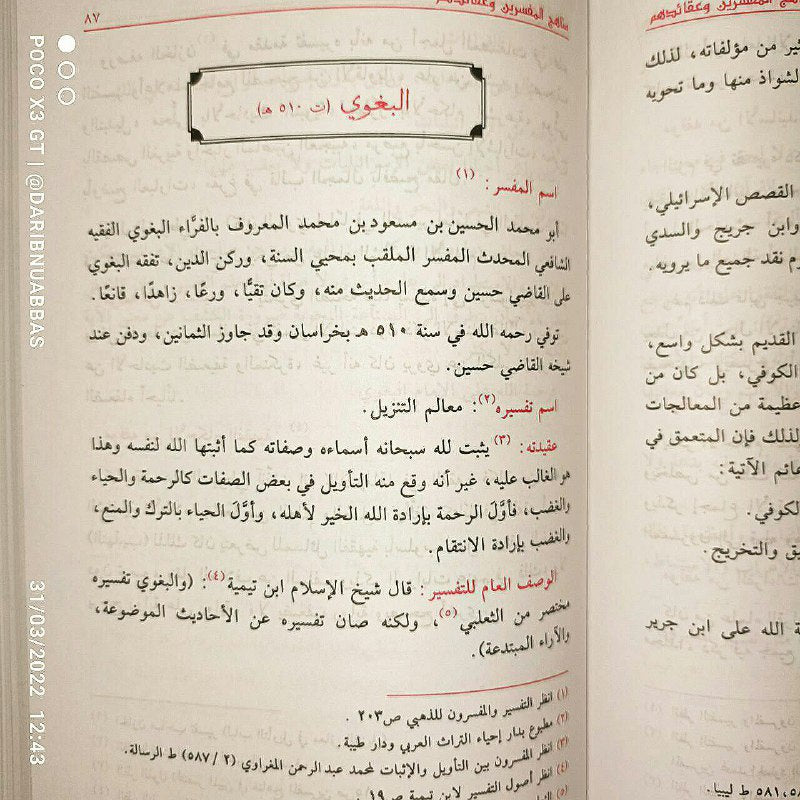 مناهج المفسرين وعقائدهم
٨٧
البغوي (ت ٥١٠ هـ)
اسم المفسر: (١)
أبو محمد الحسين بن مسعود بن محمد المعروف بالفرَّاء البغوي الفقيه
الشافعي المحدث المفسر الملقب بمحيي السنة، وركن الدين، تفقه البغوي
على القاضي حسين وسمع الحديث منه، وكان تقيًّا، ورعًا، زاهدًا، قانعًا.
توفي رحمه الله في سنة ٥١٠ هـ بخراسان وقد جاوز الثمانين، ودفن عند
شيخه القاضي حسين.
اسم تفسيره(٢): معالم التنزيل.
عقيدته: (٣) يثبت لله سبحانه أسماءه وصفاته كما أثبتها الله لنفسه وهذا
هو الغالب عليه، غير أنه وقع منه التأويل في بعض الصفات كالرحمة والحياء
والغضب، فأوَّل الرحمة بإرادة الله الخير لأهله، وأوَّلَ الحياء بالترك والمنع،
والغضب بإرادة الانتقام.
الوصف العام للتفسير: قال شيخ الإسلام ابن تيمية(٤): (والبغوي تفسيره
مختصر من الثعلبي(٥)، ولكنه صان تفسيره عن الأحاديث الموضوعة،
والآراء المبتدعة).
(١) انظر التفسير والمفسرون للذهبي ص٢٠٣.
(٢) مطبوع بدار إحياء التراث العربي ودار طيبة.
(٣) انظر المفسرون بين التأويل والإثبات لمحمد عبد الرحمن المغراوي (٢ / ٥٨٧) ط الرسالة.
(٤) انظر أصول التفسير لابن تيمية ص١٩.
(٥)
المفسرين وعقائدهم
ثير من مؤلفاته، لذلك
لشواذ منها وما تحويه
القصص الإسرائيلي،
وابن جريج والسدي
م نقد جميع ما يرويه.
القديم بشكل واسع،
الكوفي، بل كان من
عظيمة من المعالجات
لذلك فإن المتعمق في
عائم الآتية:
لكوفي.
يق والتخريج.
ة الله على ابن جرير
ط ليبيا.
POCO X3 GT | @DARIBNUABBAS
31/03/2022 12:43